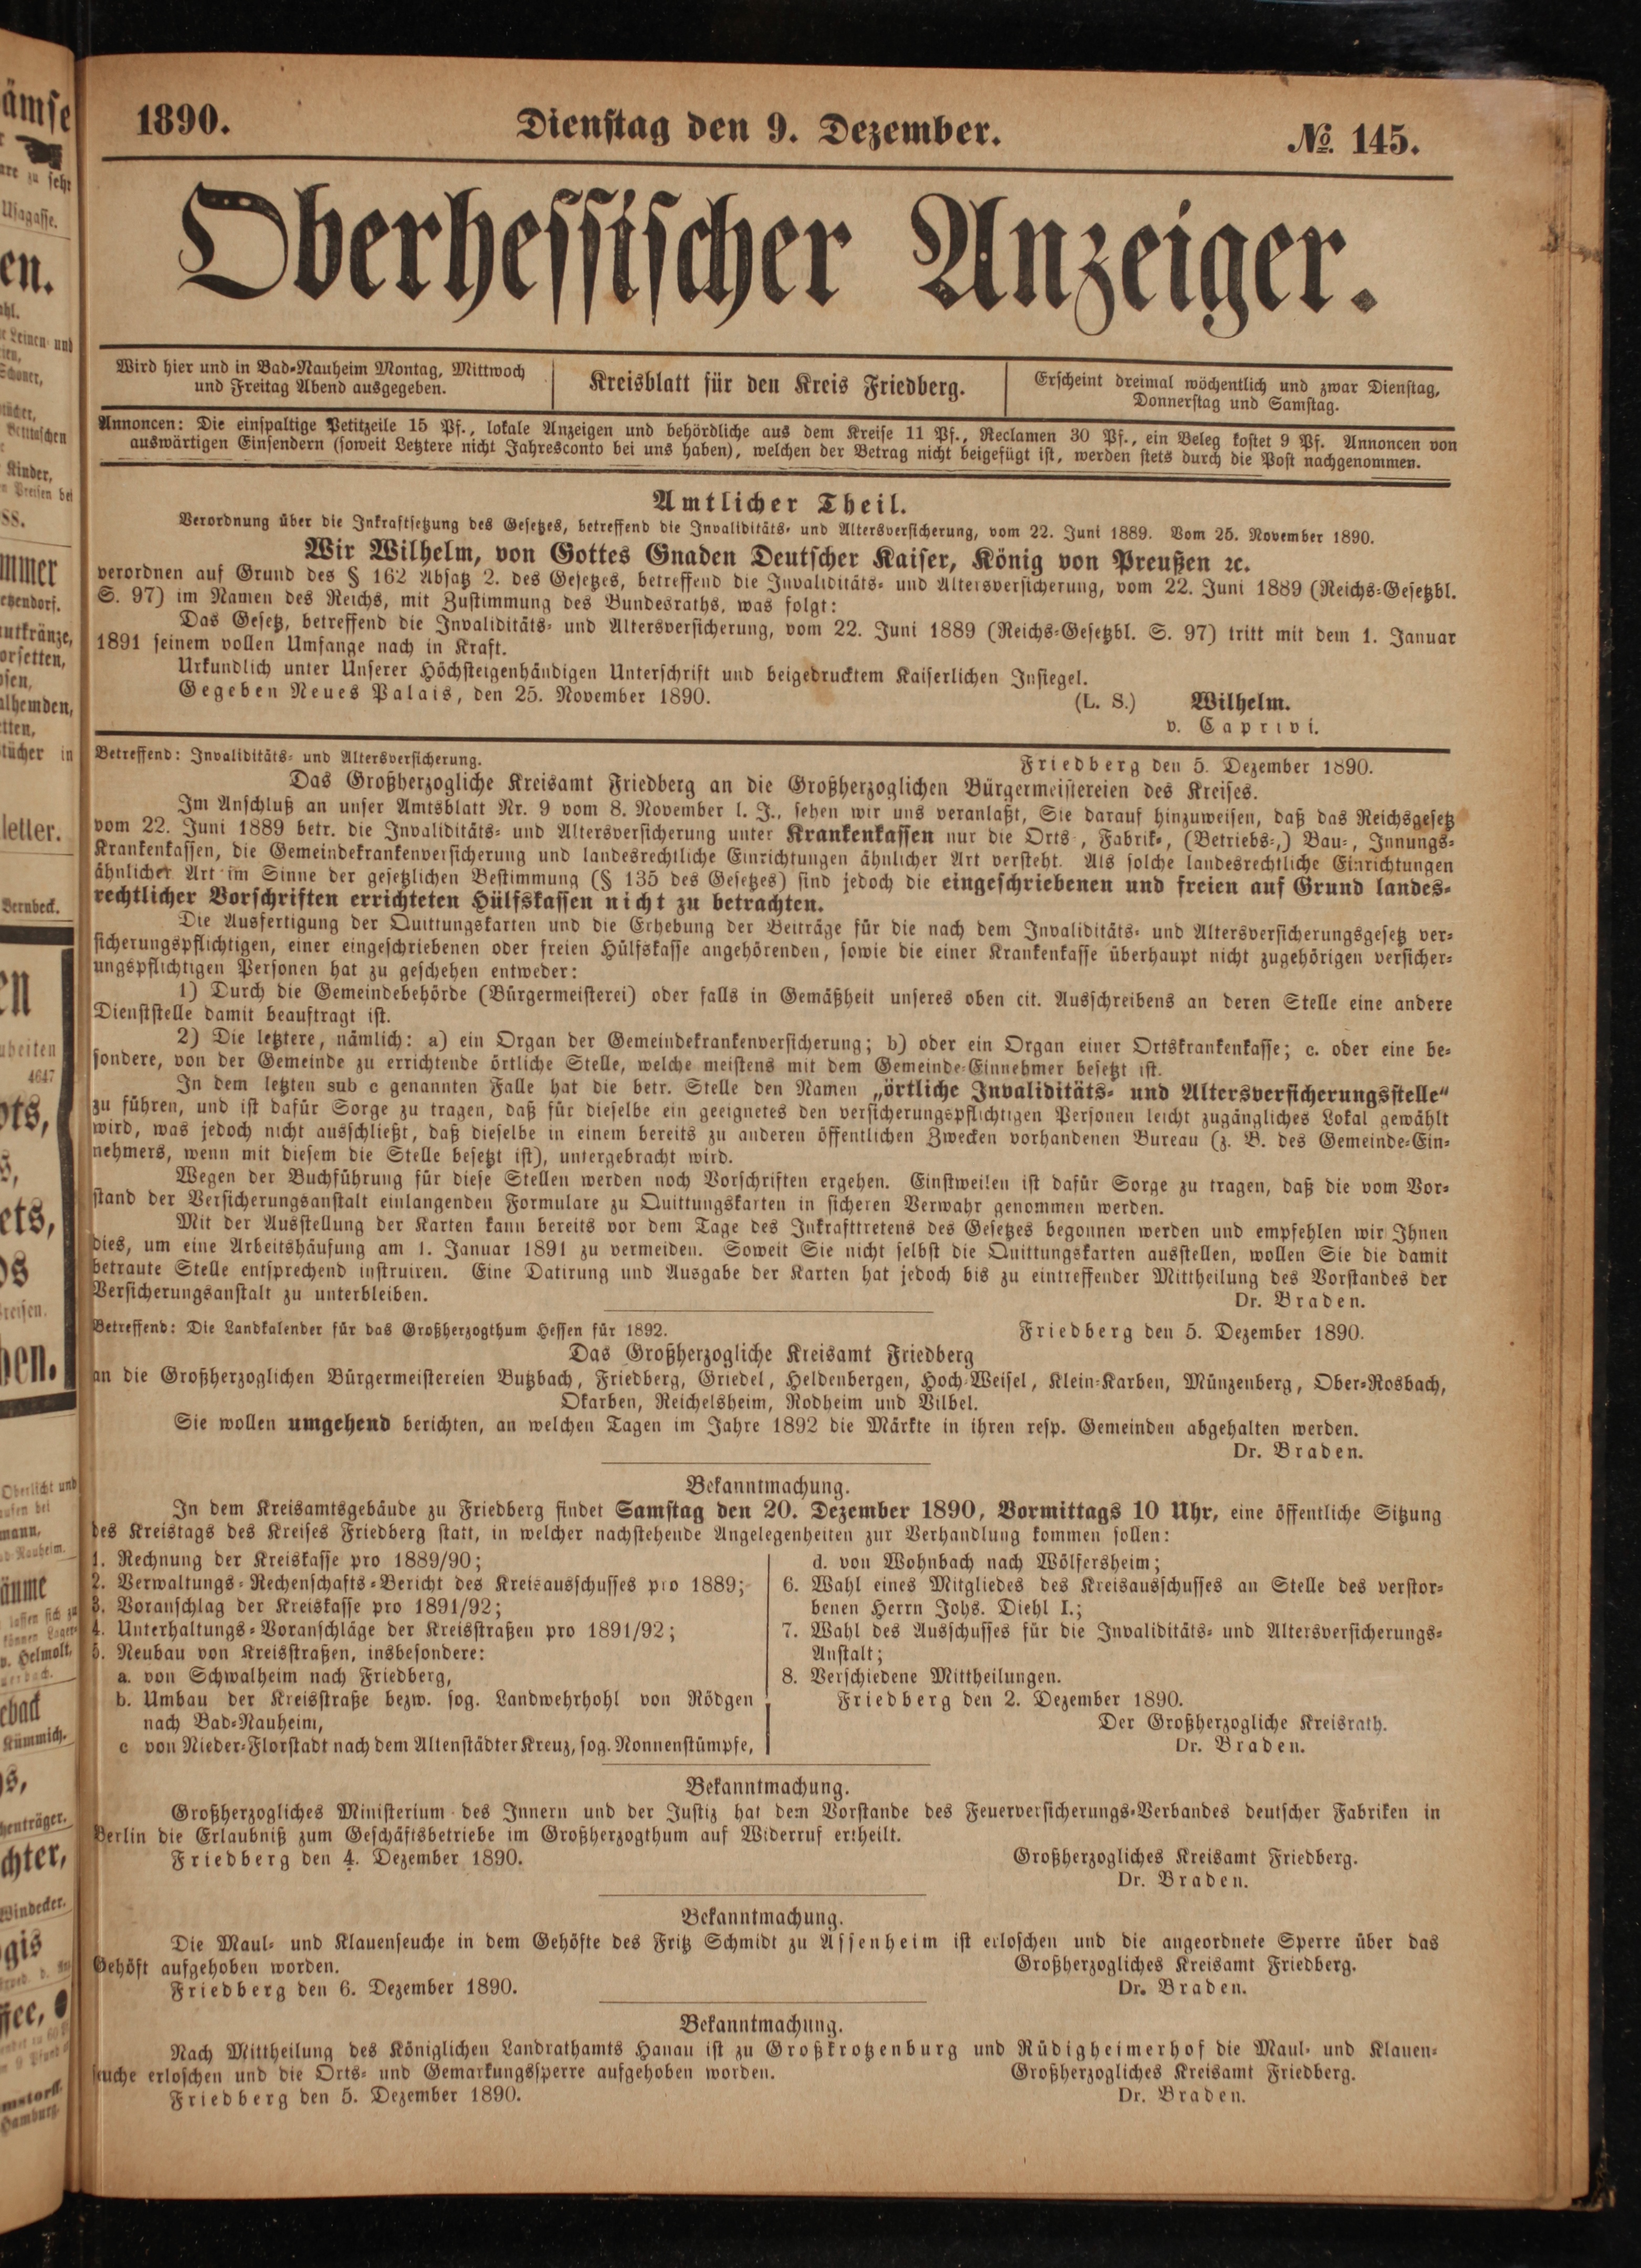 1890.
Dienstag den 9. Dezember.
№ 145.
Oberhessischer Anzeiger.
Wird hier und in Bad-Nauheim Montag, Mittwoch
und Freitag Abend ausgegeben.
Kreisblatt für den Kreis Friedberg.
Erscheint dreimal wöchentlich und zwar Dienstag,
Donnerstag und Samstag.
Annoncen: Die einspaltige Petitzeile 15 Pf., lokale Anzeigen und behördliche aus dem Kreise 11 Pf., Reclamen 30 Pf., ein Beleg kostet 9 Pf. Annoncen von
auswärtigen Einsendern (soweit Letztere nicht Jahresconto bei uns haben), welchen der Betrag nicht beigefügt ist, werden stets durch die Post nachgenommen.
Amtlicher Theil.
Verordnung über die Inkraftsetzung des Gesetzes, betreffend die Invaliditäts- und Altersversicherung, vom 22. Juni 1889. Vom 25. November 1890.
Wir Wilhelm, von Gottes Gnaden Deutscher Kaiser, König von Preußen ꝛc.
verordnen auf Grund des § 162 Absatz 2. des Gesetzes, betreffend die Invaliditäts- und Altersversicherung, vom 22. Juni 1889 (Reichs-Gesetzbl.
S. 97) im Namen des Reichs, mit Zustimmung des Bundesraths, was folgt:
Das Gesetz, betreffend die Invaliditäts- und Altersversicherung, vom 22. Juni 1889 (Reichs-Gesetzbl. S. 97) tritt mit dem 1. Januar
1891 seinem vollen Umfange nach in Kraft.
Urkundlich unter Unserer Höchsteigenhändigen Unterschrift und beigedrucktem Kaiserlichen Insiegel.
Gegeben Neues Palais, den 25. November 1890.
(L. S.) Wilhelm.
v. Caprivi.
Betreffend: Invaliditäts- und Altersversicherung.
Friedberg den 5. Dezember 1890.
Das Großherzogliche Kreisamt Friedberg an die Großherzoglichen Bürgermeistereien des Kreises.
Im Anschluß an unser Amtsblatt Nr. 9 vom 8. November l. J., sehen wir uns veranlaßt, Sie darauf hinzuweisen, daß das Reichsgesetz
vom 22. Juni 1889 betr. die Invaliditäts- und Altersversicherung unter Krankenkassen nur die Orts-, Fabrik-, (Betriebs-,) Bau-, Innungs-
Krankenkassen, die Gemeindekrankenversicherung und landesrechtliche Einrichtungen ähnlicher Art versteht. Als solche landesrechtliche Einrichtungen
ähnlicher Art im Sinne der gesetzlichen Bestimmung (§ 135 des Gesetzes) sind jedoch die eingeschriebenen und freien auf Grund landes-
rechtlicher Vorschriften errichteten Hülfskassen nicht zu betrachten.
Die Ausfertigung der Quittungskarten und die Erhebung der Beiträge für die nach dem Invaliditäts- und Altersversicherungsgesetz ver-
sicherungspflichtigen, einer eingeschriebenen oder freien Hülfskasse angehörenden, sowie die einer Krankenkasse überhaupt nicht zugehörigen versicher-
ungspflichtigen Personen hat zu geschehen entweder:
1) Durch die Gemeindebehörde (Bürgermeisterei) oder falls in Gemäßheit unseres oben cit. Ausschreibens an deren Stelle eine andere
Dienststelle damit beauftragt ist.
2) Die letztere, nämlich: a) ein Organ der Gemeindekrankenversicherung; b) oder ein Organ einer Ortskrankenkasse; c. oder eine be-
sondere, von der Gemeinde zu errichtende örtliche Stelle, welche meistens mit dem Gemeinde-Einnehmer besetzt ist.
In dem letzten sub c genannten Falle hat die betr. Stelle den Namen „örtliche Invaliditäts- und Altersversicherungsstelle“
zu führen, und ist dafür Sorge zu tragen, daß für dieselbe ein geeignetes den versicherungspflichtigen Personen leicht zugängliches Lokal gewählt
wird, was jedoch nicht ausschließt, daß dieselbe in einem bereits zu anderen öffentlichen Zwecken vorhandenen Bureau (z. B. des Gemeinde-Ein-
nehmers, wenn mit diesem die Stelle besetzt ist), untergebracht wird.
Wegen der Buchführung für diese Stellen werden noch Vorschriften ergehen. Einstweilen ist dafür Sorge zu tragen, daß die vom Vor-
stand der Versicherungsanstalt einlangenden Formulare zu Quittungskarten in sicheren Verwahr genommen werden.
Mit der Ausstellung der Karten kann bereits vor dem Tage des Inkrafttretens des Gesetzes begonnen werden und empfehlen wir Ihnen
dies, um eine Arbeitshäufung am 1. Januar 1891 zu vermeiden. Soweit Sie nicht selbst die Quittungskarten ausstellen, wollen Sie die damit
betraute Stelle entsprechend instruiren. Eine Datirung und Ausgabe der Karten hat jedoch bis zu eintreffender Mittheilung des Vorstandes der
Versicherungsanstalt zu unterbleiben.
Dr. Braden.
Betreffend: Die Landkalender für das Großherzogthum Hessen für 1892.
Friedberg den 5. Dezember 1890.
Das Großherzogliche Kreisamt Friedberg
an die Großherzoglichen Bürgermeistereien Butzbach, Friedberg, Griedel, Heldenbergen, Hoch-Weisel, Klein-Karben, Münzenberg, Ober-Rosbach,
Okarben, Reichelsheim, Rodheim und Vilbel.
Sie wollen umgehend berichten, an welchen Tagen im Jahre 1892 die Märkte in ihren resp. Gemeinden abgehalten werden.
Dr. Braden.
Bekanntmachung.
In dem Kreisamtsgebäude zu Friedberg findet Samstag den 20. Dezember 1890, Vormittags 10 Uhr, eine öffentliche Sitzung
des Kreistags des Kreises Friedberg statt, in welcher nachstehende Angelegenheiten zur Verhandlung kommen sollen:
1. Rechnung der Kreiskasse pro 1889/90;
2. Verwaltungs-Rechenschafts-Bericht des Kreisausschusses pro 1889;
3. Voranschlag der Kreiskasse pro 1891/92;
4. Unterhaltungs-Voranschläge der Kreisstraßen pro 1891/92;
5. Neubau von Kreisstraßen, insbesondere:
a. von Schwalheim nach Friedberg,
b. Umbau der Kreisstraße bezw. sog. Landwehrhohl von Rödgen
nach Bad-Nauheim,
c von Nieder-Florstadt nach dem Altenstädter Kreuz, sog. Nonnenstümpfe,
d. von Wohnbach nach Wölfersheim;
6. Wahl eines Mitgliedes des Kreisausschusses an Stelle des verstor-
benen Herrn Johs. Diehl I.;
7. Wahl des Ausschusses für die Invaliditäts- und Altersversicherungs-
Anstalt;
8. Verschiedene Mittheilungen.
Friedberg den 2. Dezember 1890.
Der Großherzogliche Kreisrath.
Dr. Braden.
Bekanntmachung.
Großherzogliches Ministerium des Innern und der Justiz hat dem Vorstande des Feuerversicherungs-Verbandes deutscher Fabriken in
Berlin die Erlaubniß zum Geschäftsbetriebe im Großherzogthum auf Widerruf ertheilt.
Friedberg den 4. Dezember 1890.
Großherzogliches Kreisamt Friedberg.
Dr. Braden.
Bekanntmachung.
Die Maul- und Klauenseuche in dem Gehöfte des Fritz Schmidt zu Assenheim ist erloschen und die angeordnete Sperre über das
Gehöft aufgehoben worden.
Großherzogliches Kreisamt Friedberg.
Friedberg den 6. Dezember 1890.
Dr. Braden.
Bekanntmachung.
Nach Mittheilung des Königlichen Landrathamts Hanau ist zu Großkrotzenburg und Rüdigheimerhof die Maul- und Klauen-
seuche erloschen und die Orts- und Gemarkungssperre aufgehoben worden.
Großherzogliches Kreisamt Friedberg.
Friedberg den 5. Dezember 1890.
Dr. Braden.